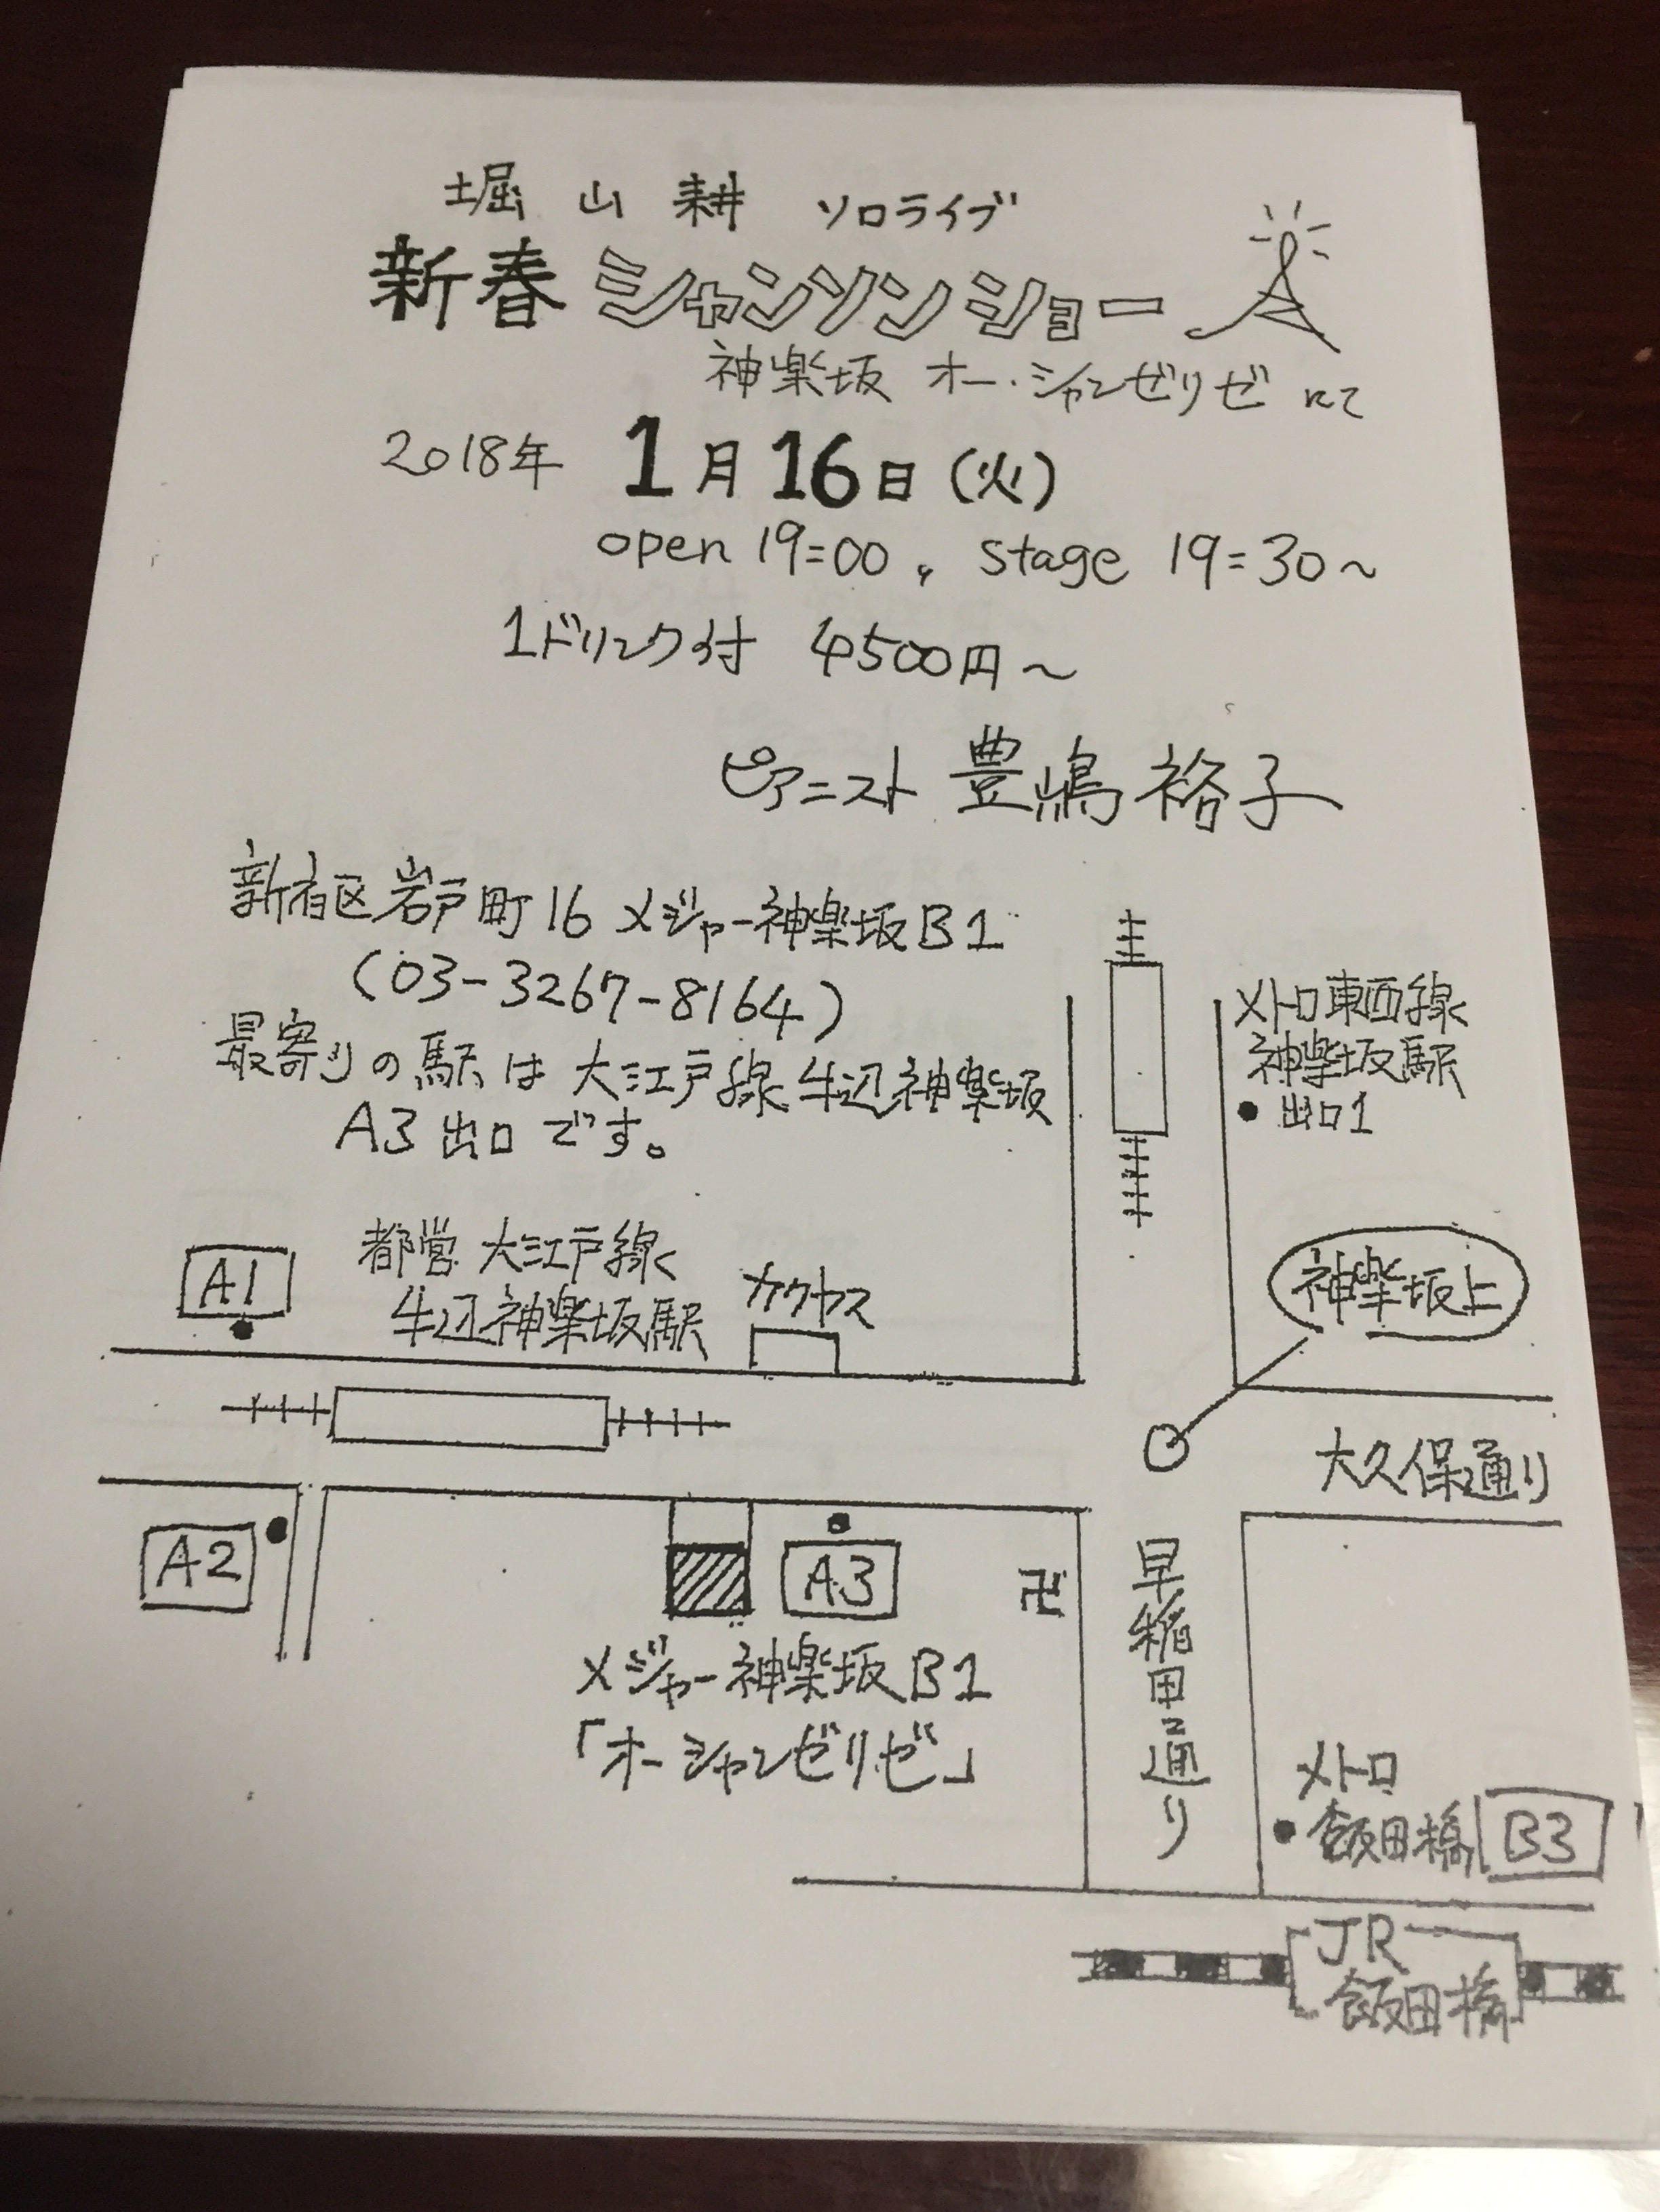 堀山耕 ソロライブ
新春 シャンソンショー
神楽坂 オー・シャンゼリゼ にて
2018年 1月16日(火)
open 19:00, stage 19:30〜
1ドリンク付 4500円〜
ピアニスト 豊嶋裕子
新宿区岩戸町16 メジャー神楽坂B1
(03-3267-8164)
最寄りの駅は大江戸線牛込神楽坂
A3出口です。
メトロ東西線
神楽坂駅
出口1
A1
都営 大江戸線
牛込神楽坂駅
カクヤス
神楽坂上
大久保通り
A2
A3
卍
早稲田通り
メジャー神楽坂B1
「オーシャンゼリゼ」
メトロ
飯田橋 B3
JR
飯田橋